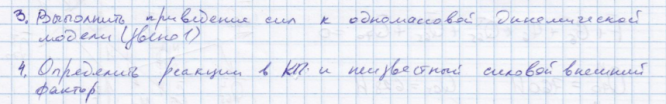 3. Выполнить приведение сил к одномассовой динамической
модели (звено 1)
4. Определить реакции в КП и неизвестный силовой внешний
фактор